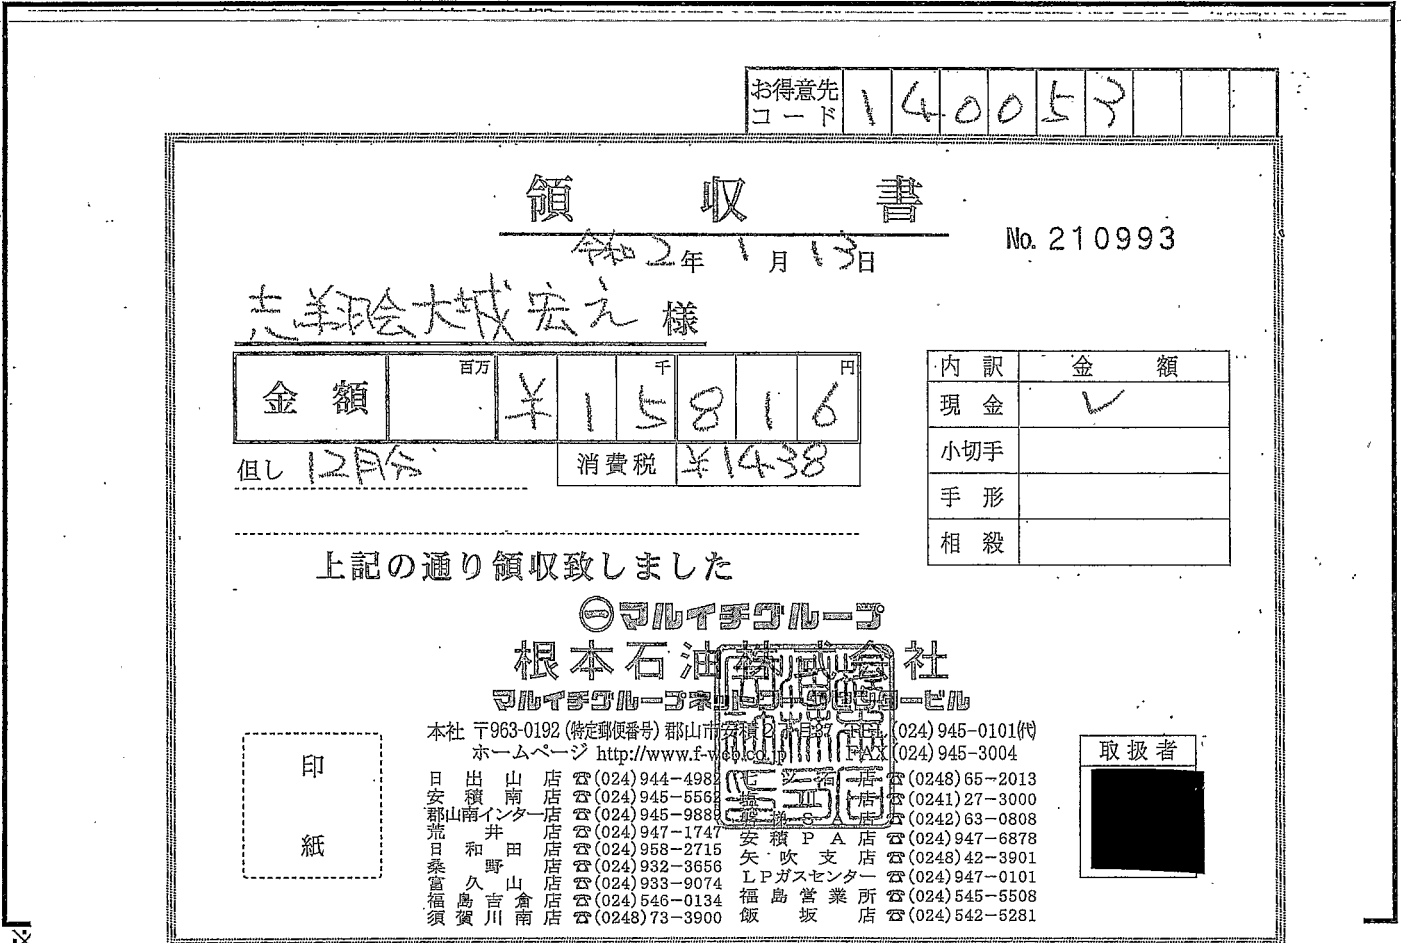 お得意先コード 140053
領収書
No. 210993
令和2年1月13日
志翔会大城宏之 様
金額 百万 千 円 ¥15816
但し 12月分 消費税 ¥1438
内訳 金額
現金 ✓
小切手
手形
相殺
上記の通り領収致しました
㊀マルイチグループ
根本石油株式会社
本社 〒963-0192 (特定郵便番号) 郡山市安積2丁目 TEL (024) 945-0101(代)
ホームページ http://www.f-web.co.jp FAX (024) 945-3004
日出山店 ☎(024)944-4982
安積南店 ☎(024)945-5562
郡山南インター店 ☎(024)945-9889
荒井店 ☎(024)947-1747
日和田店 ☎(024)958-2715
桑野店 ☎(024)932-3656
富久山店 ☎(024)933-9074
福島吉倉店 ☎(024)546-0134
須賀川南店 ☎(0248)73-3900
店 ☎(0248)65-2013
店 ☎(0241)27-3000
SA店 ☎(0242)63-0808
安積PA店 ☎(024)947-6878
矢吹支店 ☎(0248)42-3901
LPガスセンター ☎(024)947-0101
福島営業所 ☎(024)545-5508
飯坂店 ☎(024)542-5281
印紙
取扱者